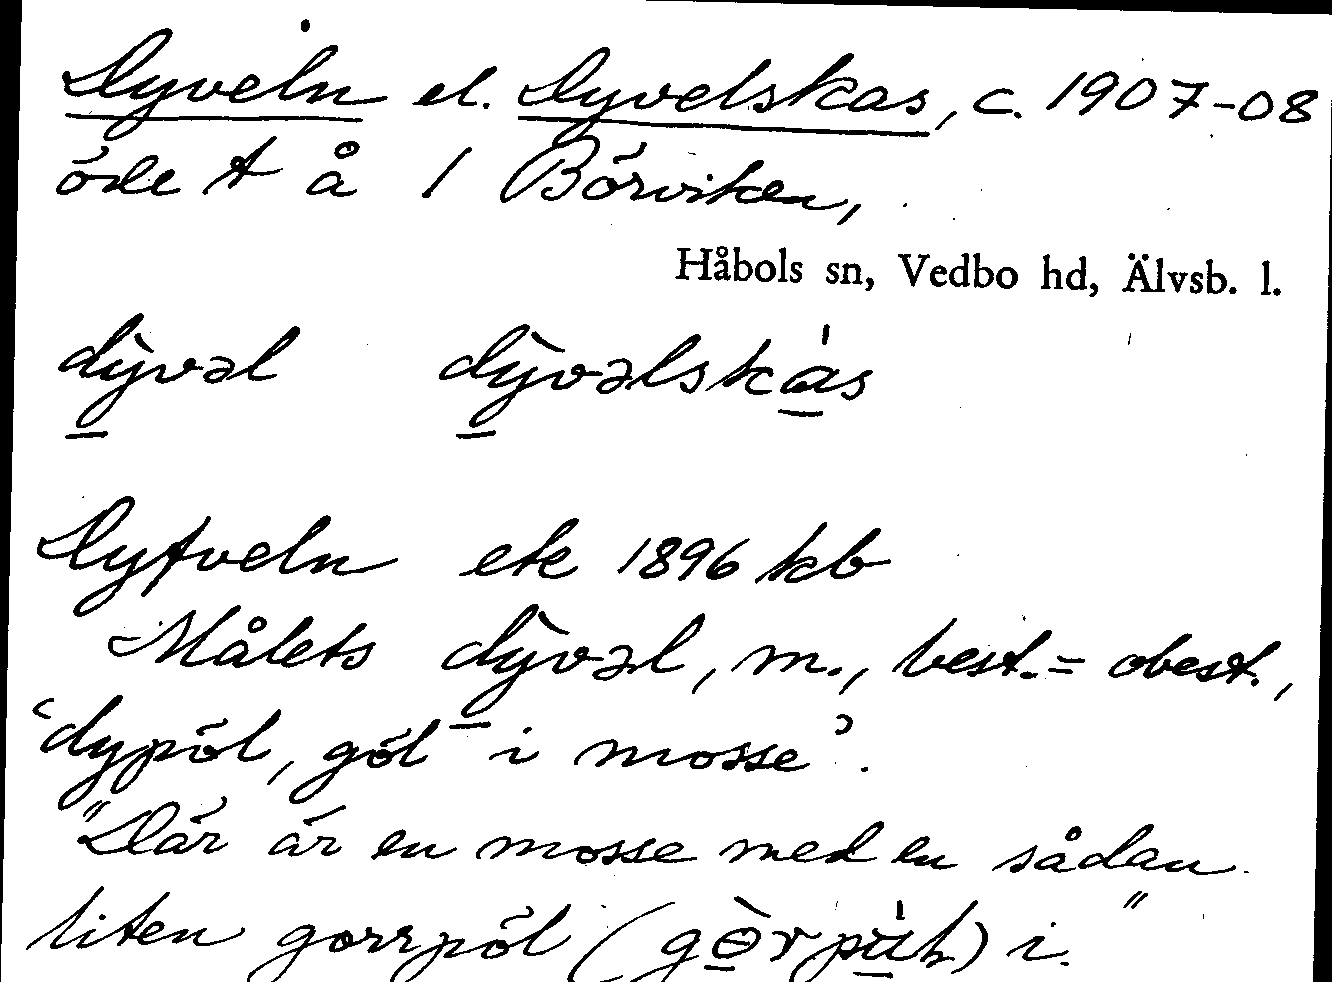 Dyveln el. Dyvelskas, c. 1907-08
öde t å 1 Börviken,
Håbols sn, Vedbo hd, Älvsb. l.
dỳ̱vəl dỳ̱vəlska̱̍s
Dyfveln etc 1896 kb
Målets dỳ̱vəl, m., best. = obest.,
‘dypöl, göl i mosse’.
"Där är en mosse med en sådan
liten gorrpöl (
) i."